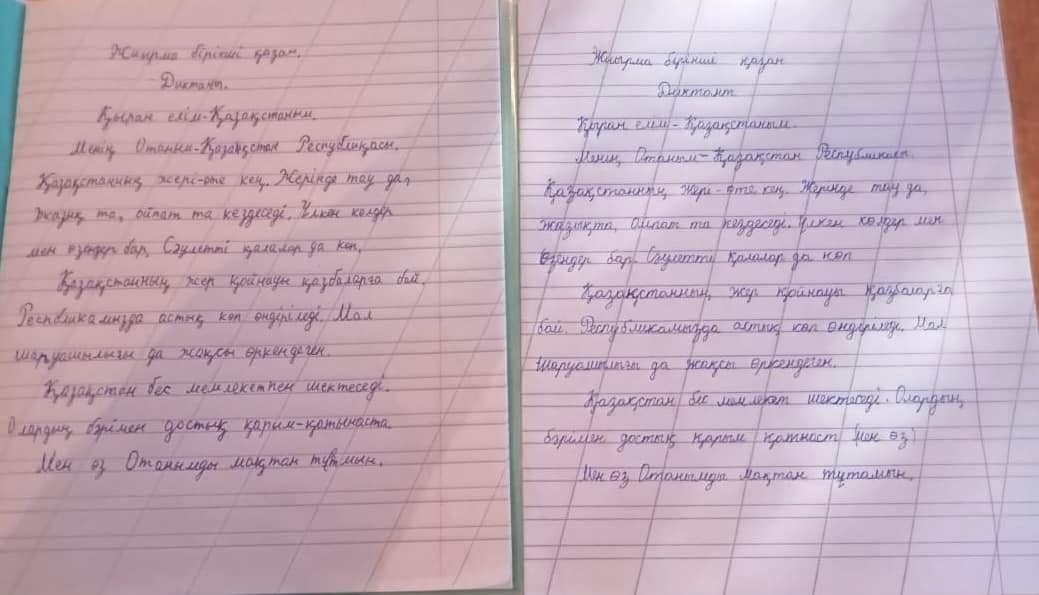 Жиырма бірінші қазан.
Диктант.
Қыран елім-Қазақстаным.
Менің Отаным-Қазақстан Республикасы.
Қазақстанның жері-өте кең. Жерінде тау да,
жазық та, ойпат та кездеседі. Үлкен көлдер
мен өзендер бар. Сәулетті қалалар да көп.
Қазақстанның жер қойнауы қазбаларға бай.
Республикамызда астық көп өндіріледі. Мал
шаруашылығы да жақсы өркендеген.
Қазақстан бес мемлекетпен шектеседі.
Олардың бәрімен достық қарым-қатынаста.
Мен өз Отанымды мақтан тұтмын.
Жиырма бірінші қазан
Диктант
Қыран елім - Қазақстаным.
Менің Отаным - Қазақстан Республикасы.
Қазақстанның жері - өте кең. Жерінде тау да,
жазықта, ойпат та кездеседі. Үлкен көлдер мен
Өзендер бар. Сәулетті қалалар да көп
Қазақстанның жер қойнауы қазбаларға
бай. Республикамызда астық көп өндіріледі. Мал
шаруашылығы да жақсы өркендеген.
Қазақстан бес мемлекет шектеседі. Олардың
бәрімен достық қарым қатнаст (мен өз)
Мен өз Отанымды мақтан тұтамын.